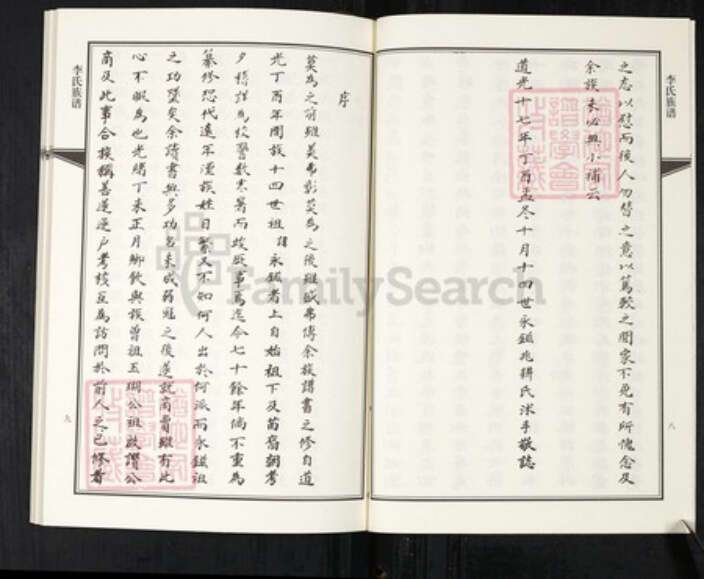 李氏族谱
之志以慰而後人勿替之意以篤歟之聞家不免有所愧念及
余族未必無小補云
道光十七年丁酉孟冬十月十四世永鎡兆耕氏沐手敬誌
八
李氏族谱
序
莫為之前雖美弗彰莫為之後雖盛弗傳余族譜書之修自道
光丁酉年間族十四世祖諱永鎡者上自始祖下及苗裔朝考
夕稽詳為校警數寒暑而竣厥事焉迄今七十餘年倘不重為
纂修恐代遠年湮族姓日繁又不知何人出於何派而永鎡祖
之功墜矣余讀書無多功名未成弱冠之後遂就商賈雖有此
心不暇為也光緒丁未正月鄉飲與族曾祖五瑚公祖啟潤公
商及此事合族稱善遂逐戶考核互為訪問於前人之已修者
九
FamilySearch